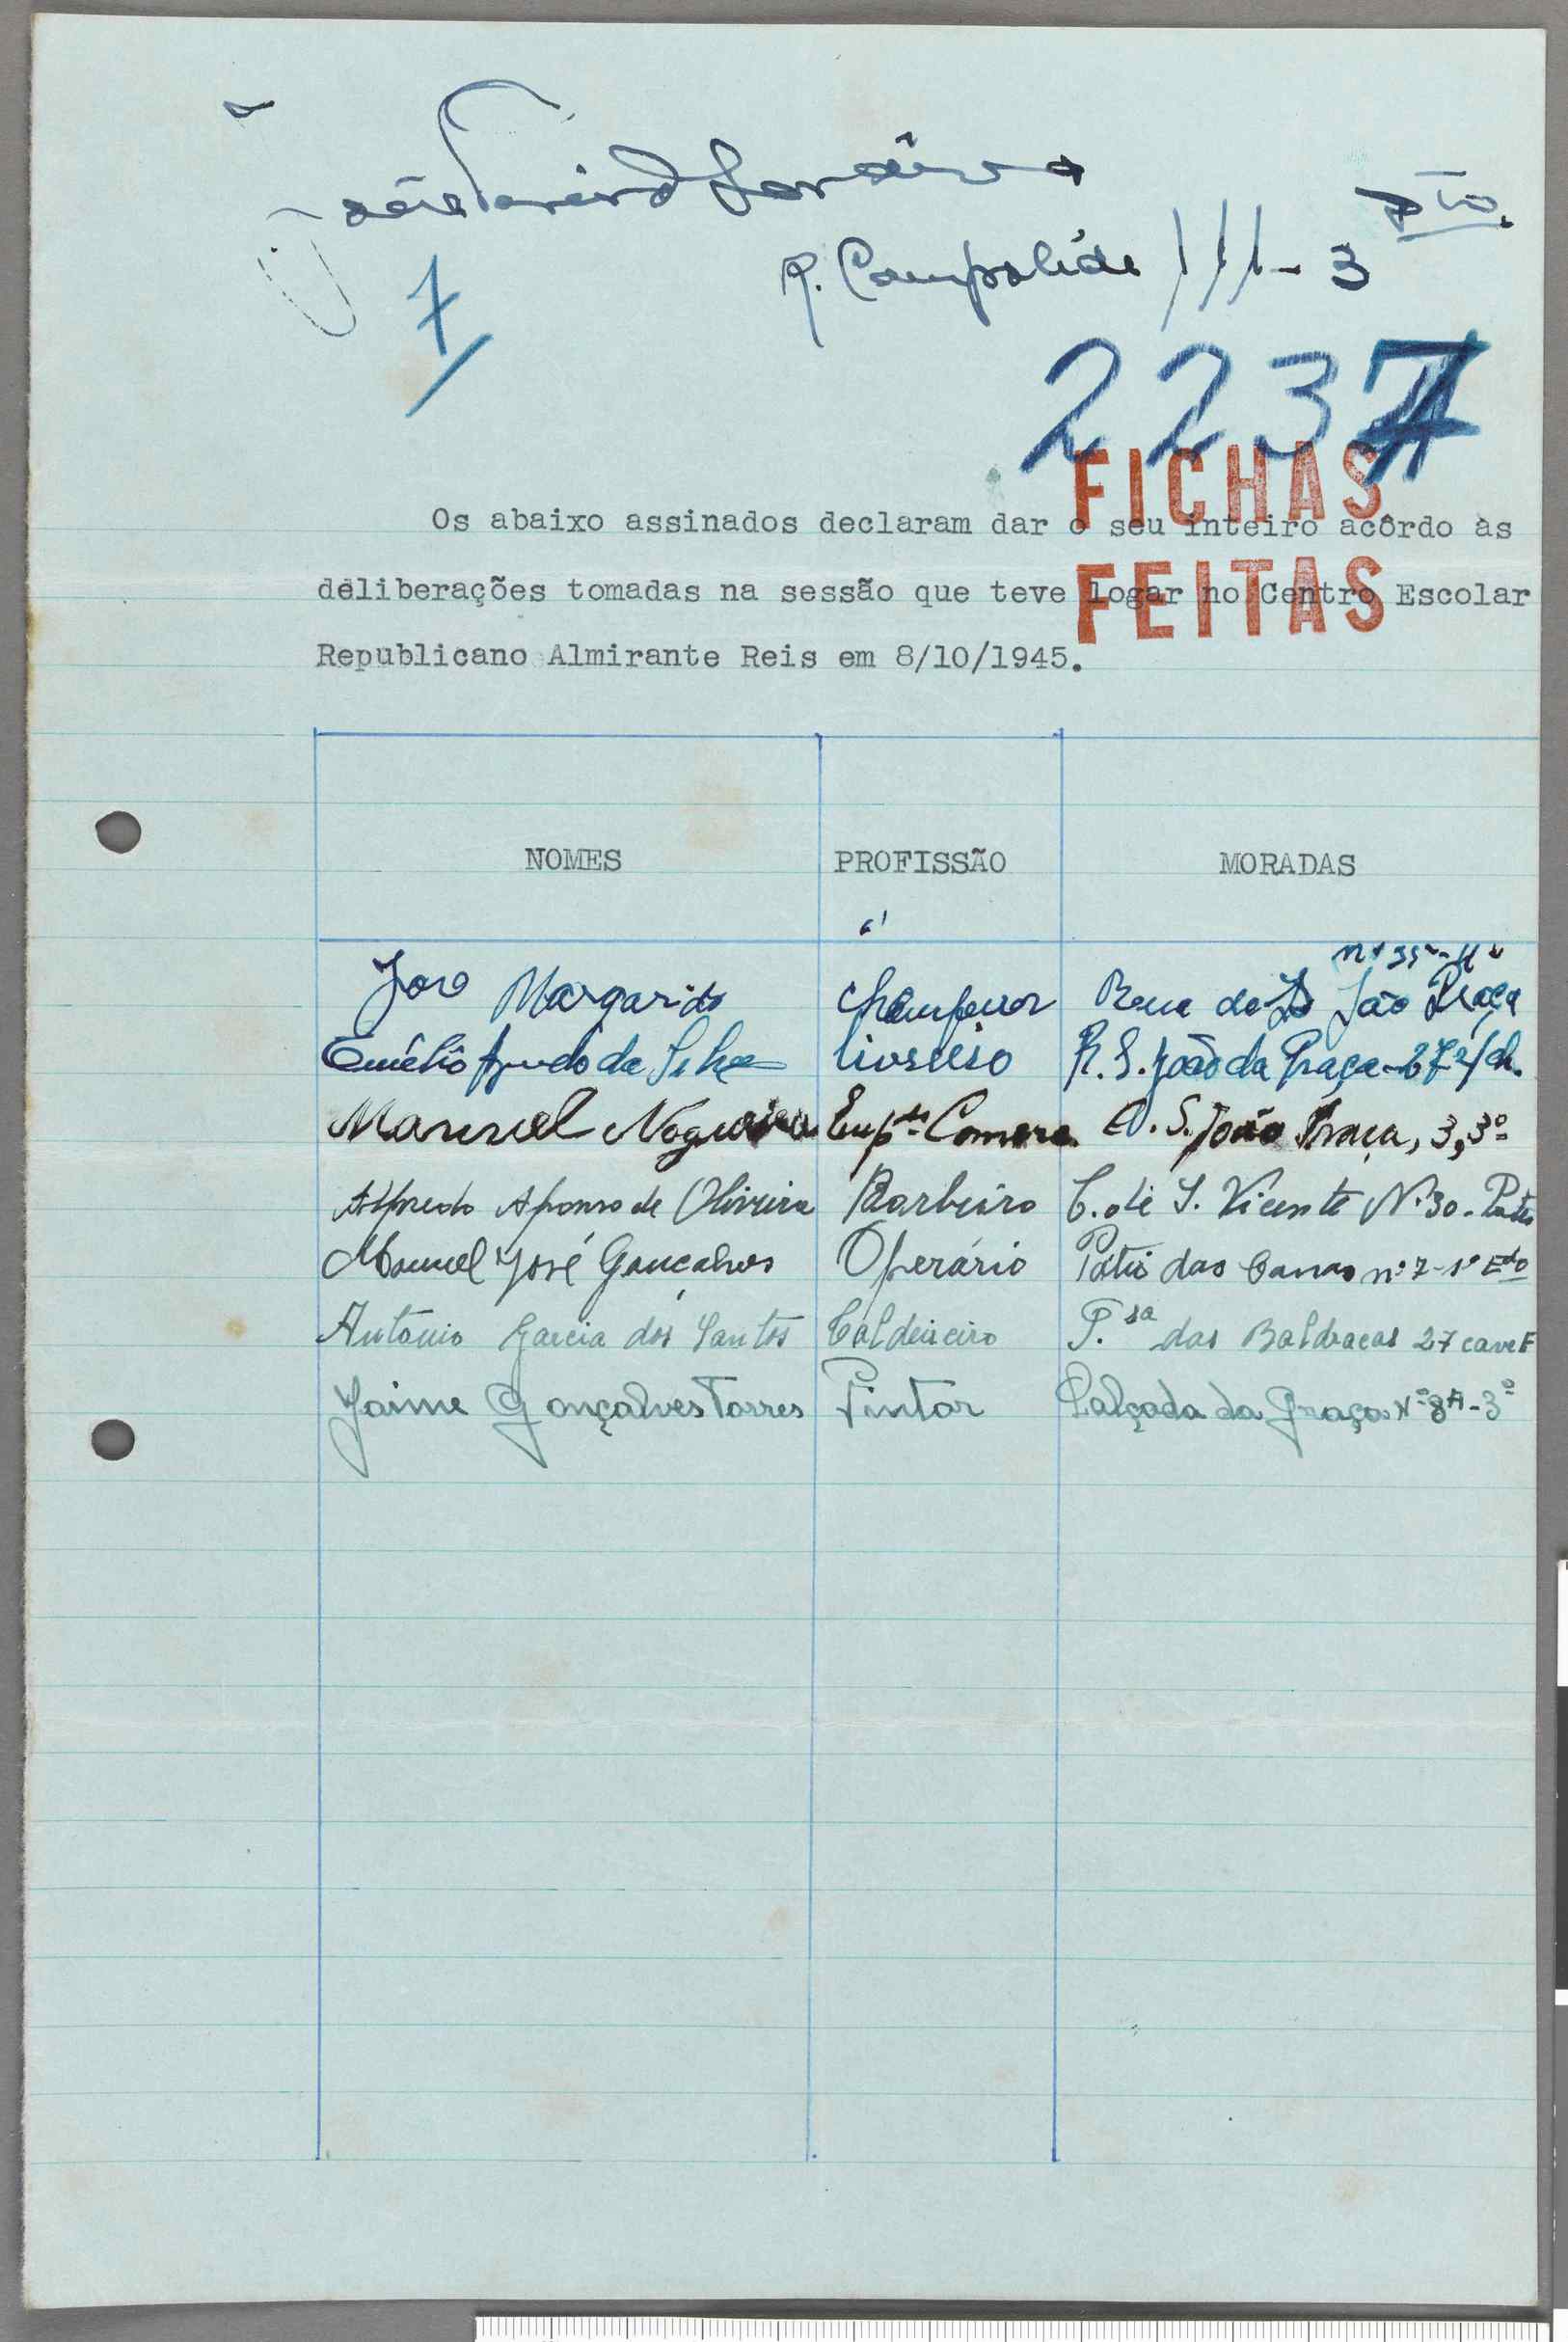 R. Campolide 111 - 3 Dto.
7
2237
FICHAS
FEITAS
Os abaixo assinados declaram dar o seu inteiro acôrdo às
deliberações tomadas na sessão que teve logar no Centro Escolar
Republicano Almirante Reis em 8/10/1945.
NOMES PROFISSÃO MORADAS
José Margarido chauffeur Rua de S. João Praça
da Silva livreiro R. S. João da Praça
Manuel Nogueira Emp. Comerc. R. S. João Praça, 3, 3º
Alfredo Afonso de Oliveira Barbeiro C. de S. Vicente Nº 30 - Patio
Manuel José Gonçalves Operário Patio das Canas nº 7 - 1º Edo
António Garcia dos Santos Caldeireiro T.sa das Baldracas 27 cave E
Jaime Gonçalves Torres Pintor Calçada da Graça Nº 8A - 3º